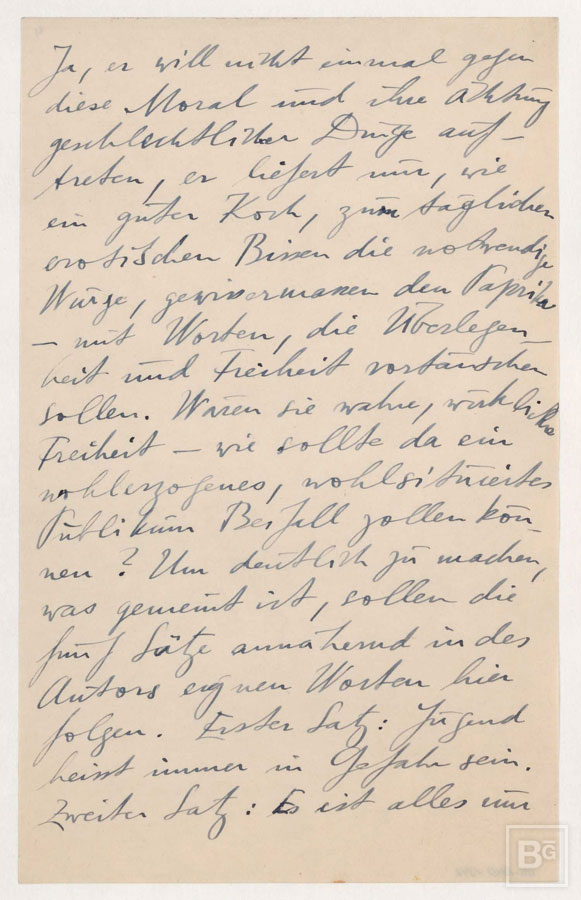 Ja, er will nicht einmal gegen
diese Moral und ihre Achtung
geschlechtlicher Dinge auf-
treten, er liefert nur, wie
ein guter Koch, zum täglichen
erotischen Bissen die notwendige
Würze, gewissermassen den Paprika
– mit Worten, die Überlegen-
heit und Freiheit vortäuschen
sollen. Wären sie wahre, wirkliche
Freiheit – wie sollte da ein
wohlerzogenes, wohlsituiertes
Publikum Beifall zollen kön-
nen? Um deutlich zu machen,
was gemeint ist, sollen die
fünf Sätze annähernd in des
Autors eignen Worten hier
folgen. Erster Satz: Jugend
heisst immer in Gefahr sein.
Zweiter Satz: Es ist alles nur
BG